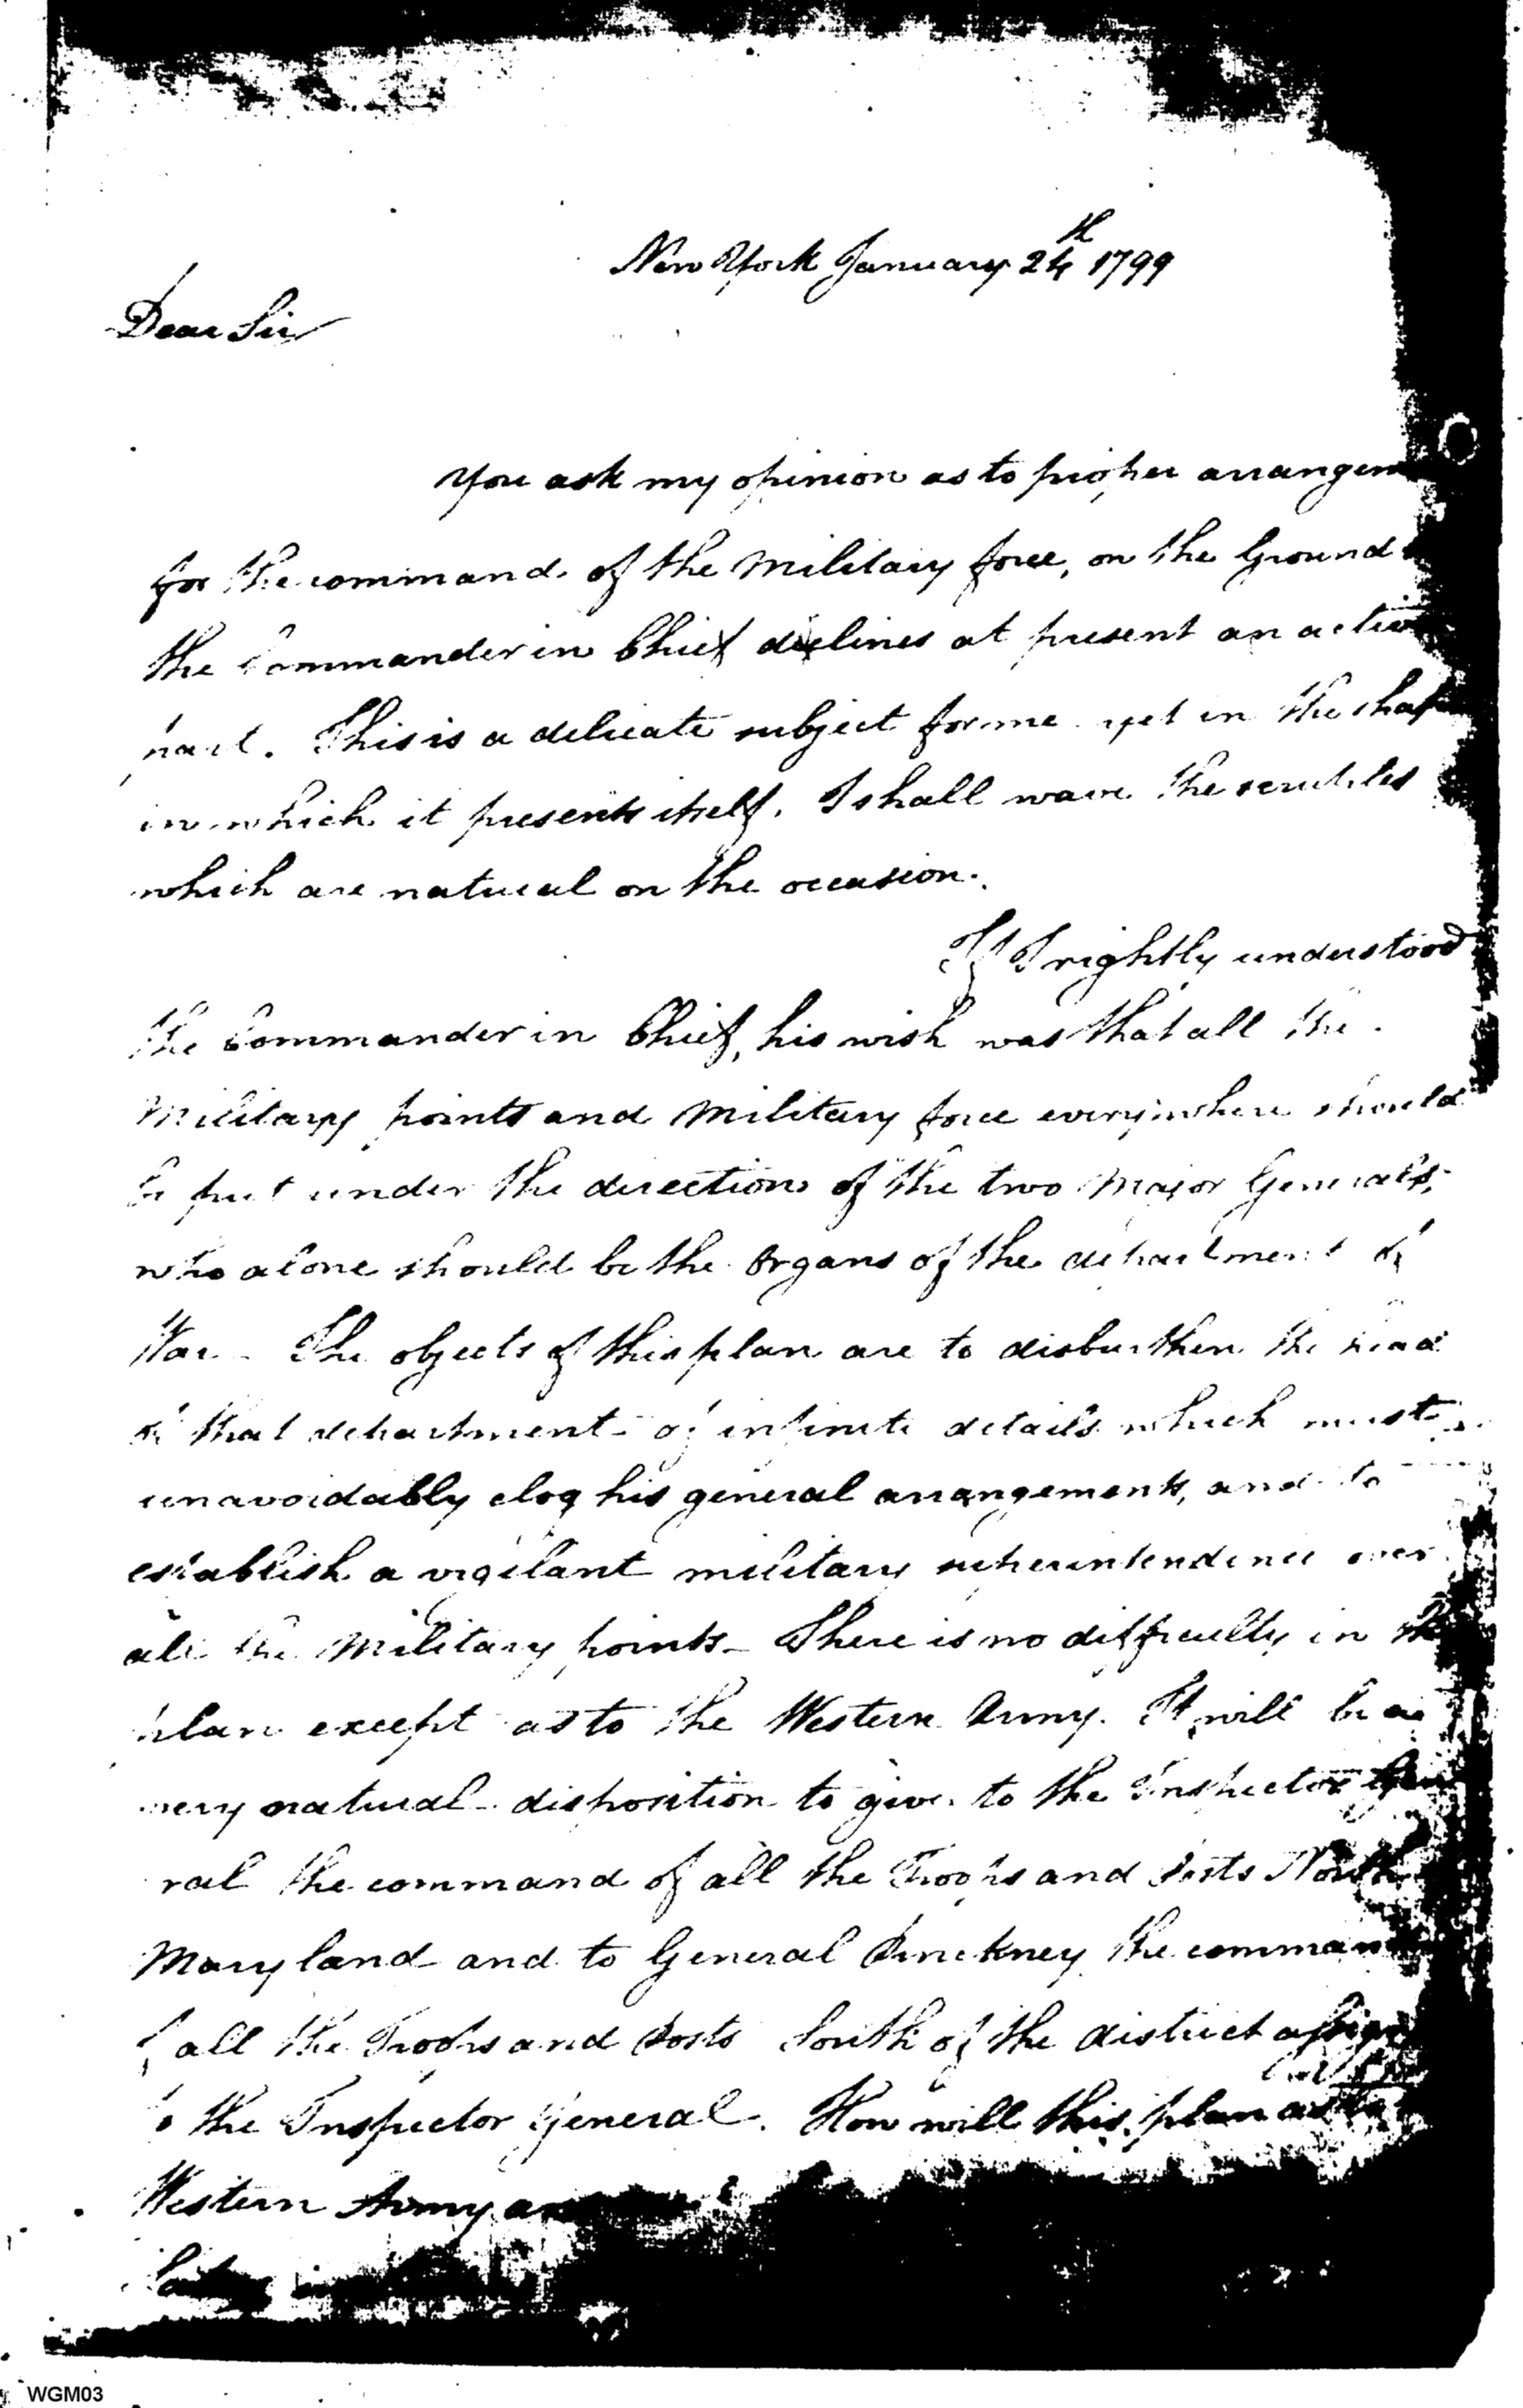 New York January 24th 1799
Dear Sir
You ask my opinion as to proper arrangem
for the command of the Military force, on the Ground
the Commander in Chief declines at present an activ
part. This is a delicate subject for me yet in the shap
in which it presents itself. I shall wave the scruples
which are natural on the occasion.
If I rightly understood
the Commander in Chief, his wish was that all the
Military points and Military force everywhere should
be put under the direction of the two Major Generals,
who alone should be the Organs of the department of
War - The objects of this plan are to disburthen the head
of that department of infinite details which must
unavoidably clog his general arrangements, and to
establish a vigilant military superintendence over
all the Military points - There is no difficulty in
plan except as to the Western Army. It will be a
very natural disposition to give to the Inspector Gen
ral the command of all the Troops and Posts North
Maryland and to General Pinckney the comman
f all the Troops and Posts South of the district assign
to the Inspector General. How will this plan as to
Western Army
WGM03